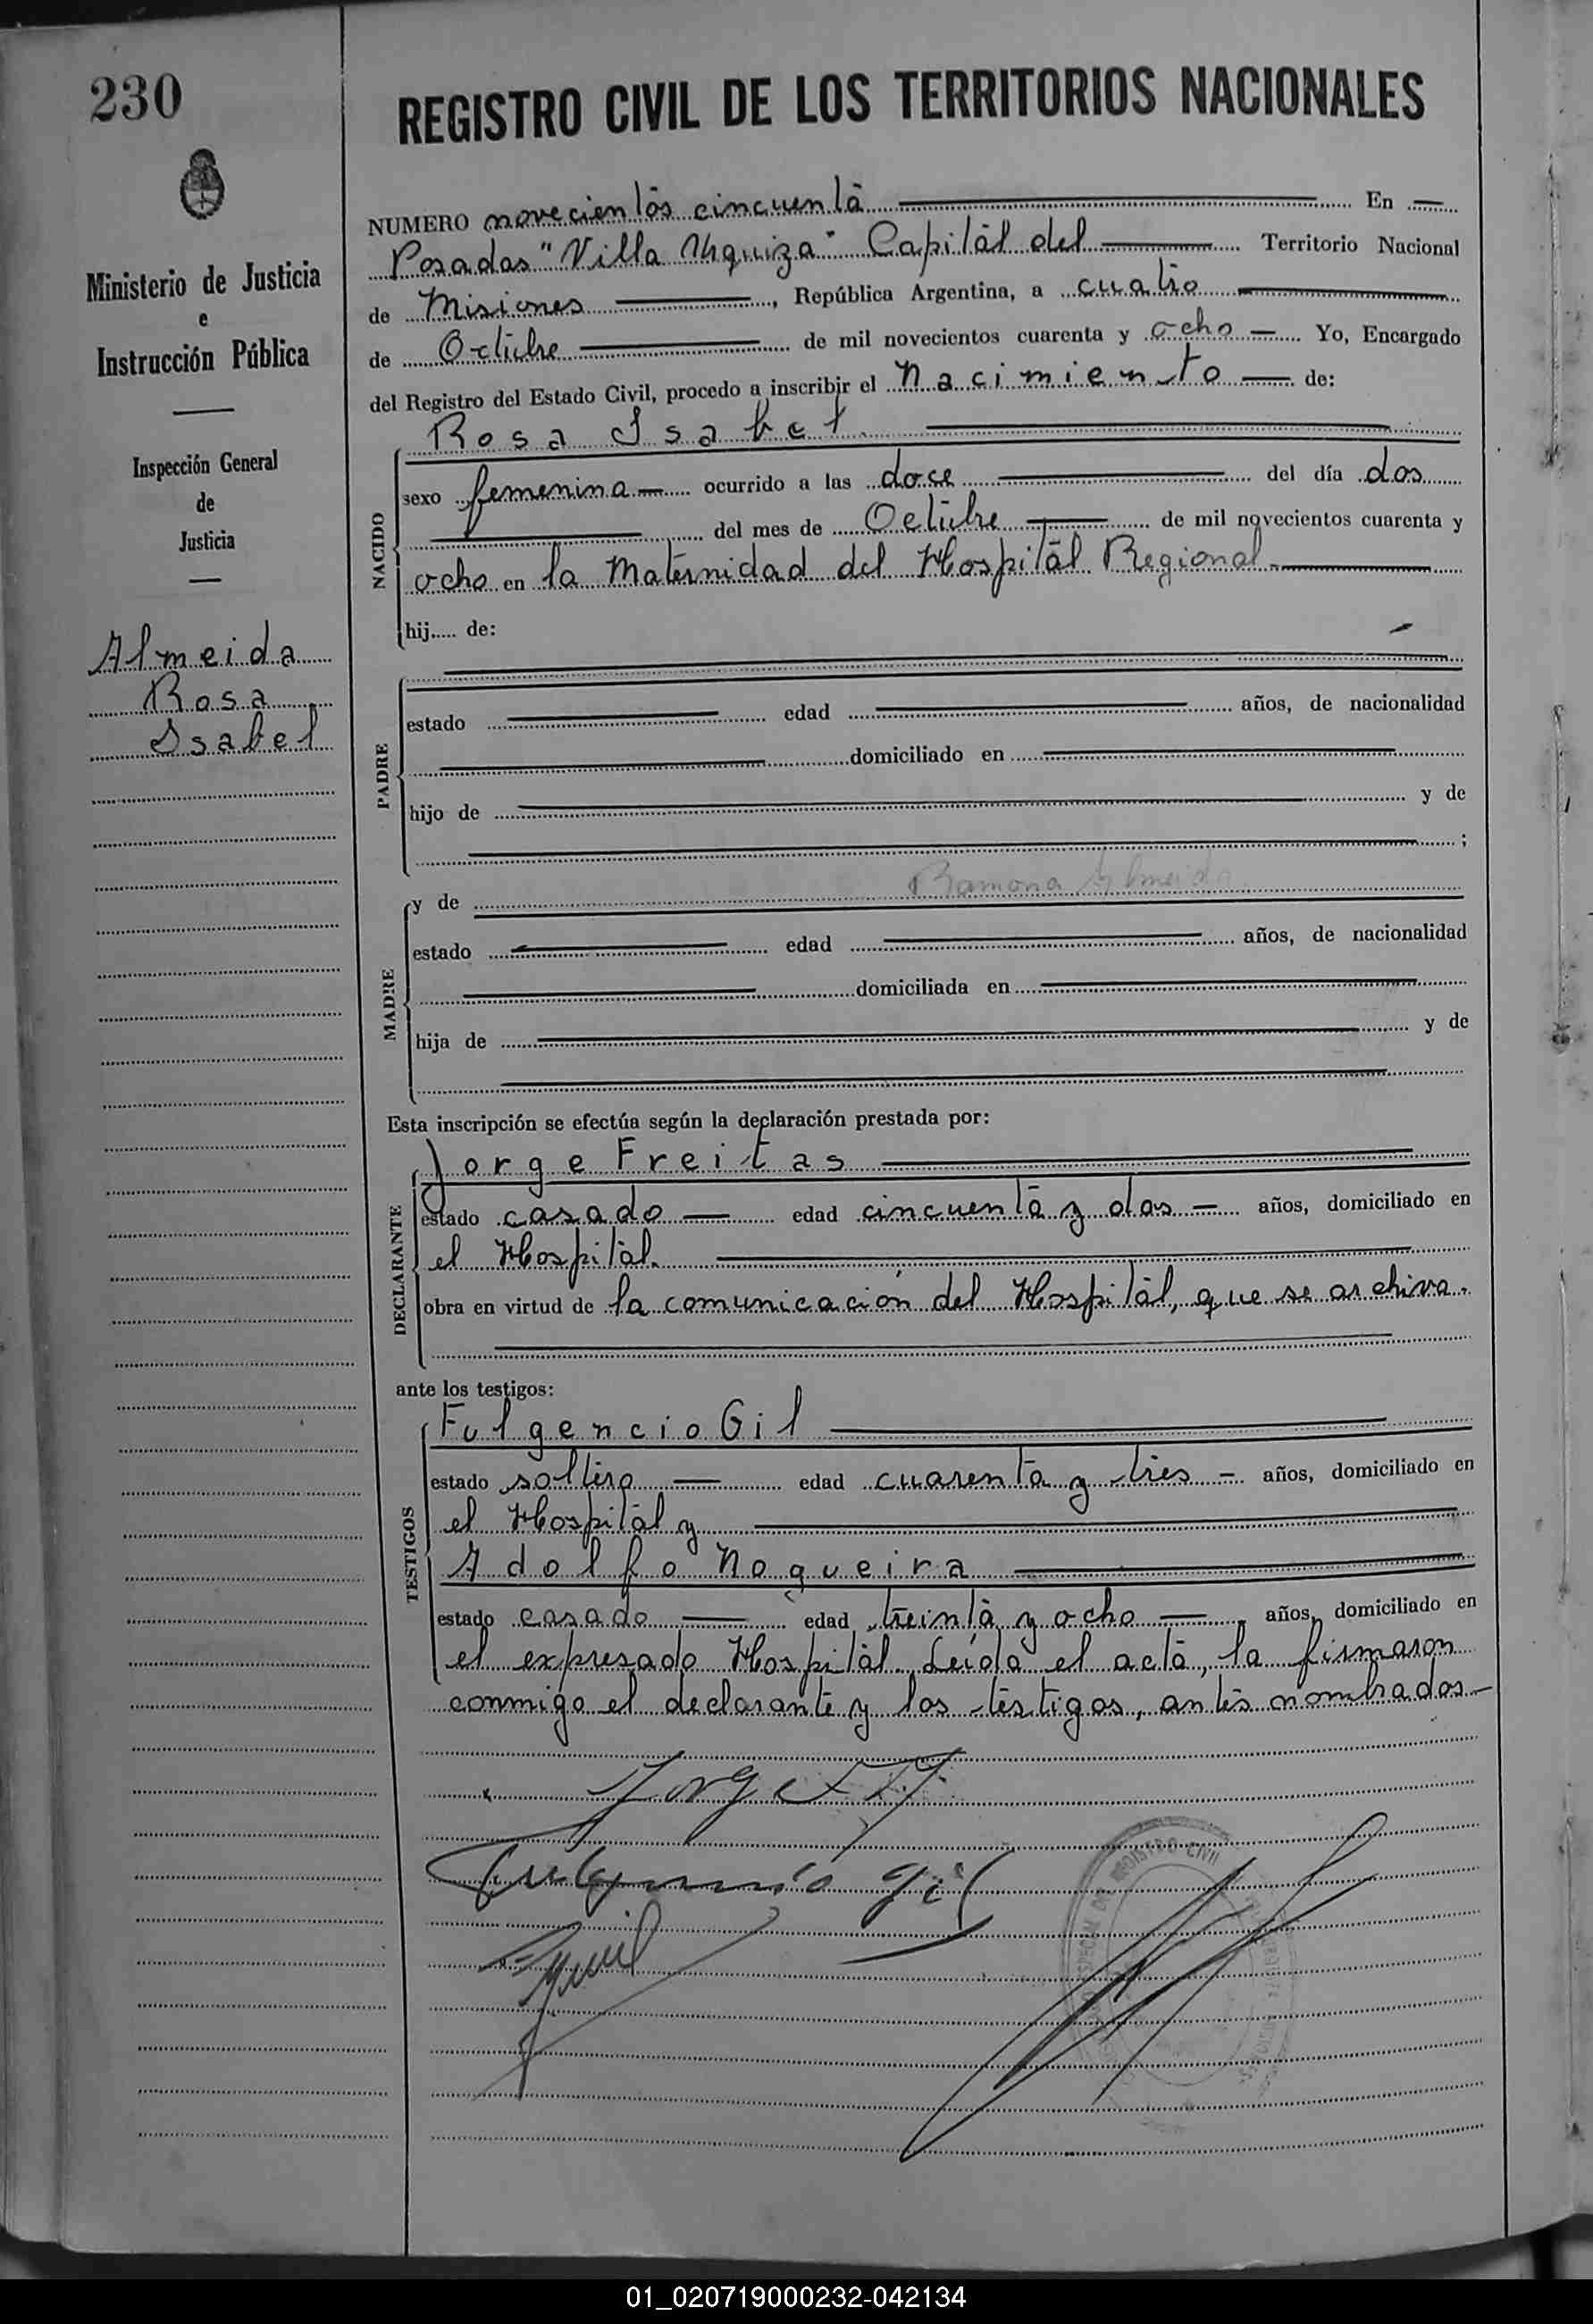 230
REGISTRO CIVIL DE LOS TERRITORIOS NACIONALES
Ministerio de Justicia
e
Instrucción Pública
Inspección General
de
Justicia
Almeida
Rosa
Isabel
NUMERO novecientos cincuenta En
Posadas "Villa Urquiza" Capital del Territorio Nacional
de Misiones, República Argentina, a cuatro
de Octubre de mil novecientos cuarenta y ocho Yo, Encargado
del Registro del Estado Civil, procedo a inscribir el Nacimiento de:
Rosa Isabel
NACIDO
sexo femenina ocurrido a las doce del día dos
del mes de Octubre de mil novecientos cuarenta y
ocho en la Maternidad del Hospital Regional.
hij..... de:
PADRE
estado edad años, de nacionalidad
domiciliado en
hijo de y de
;
MADRE
Ramona Almeida
y de
estado edad años, de nacionalidad
domiciliada en
hija de y de
Esta inscripción se efectúa según la declaración prestada por:
DECLARANTE
Jorge Freitas
estado casado edad cincuenta y dos años, domiciliado en
el Hospital.
obra en virtud de la comunicación del Hospital, que se archiva.
ante los testigos:
TESTIGOS
Fulgencio Gil
estado soltero edad cuarenta y tres años, domiciliado en
el Hospital y
Adolfo Nogueira
estado casado edad treinta y ocho años, domiciliado en
el expresado Hospital. Leída el acta, la firmaron
conmigo el declarante y los testigos, antes nombrados
Jorge
Fulgencio Gil
REGISTRO CIVIL
01_020719000232-042134